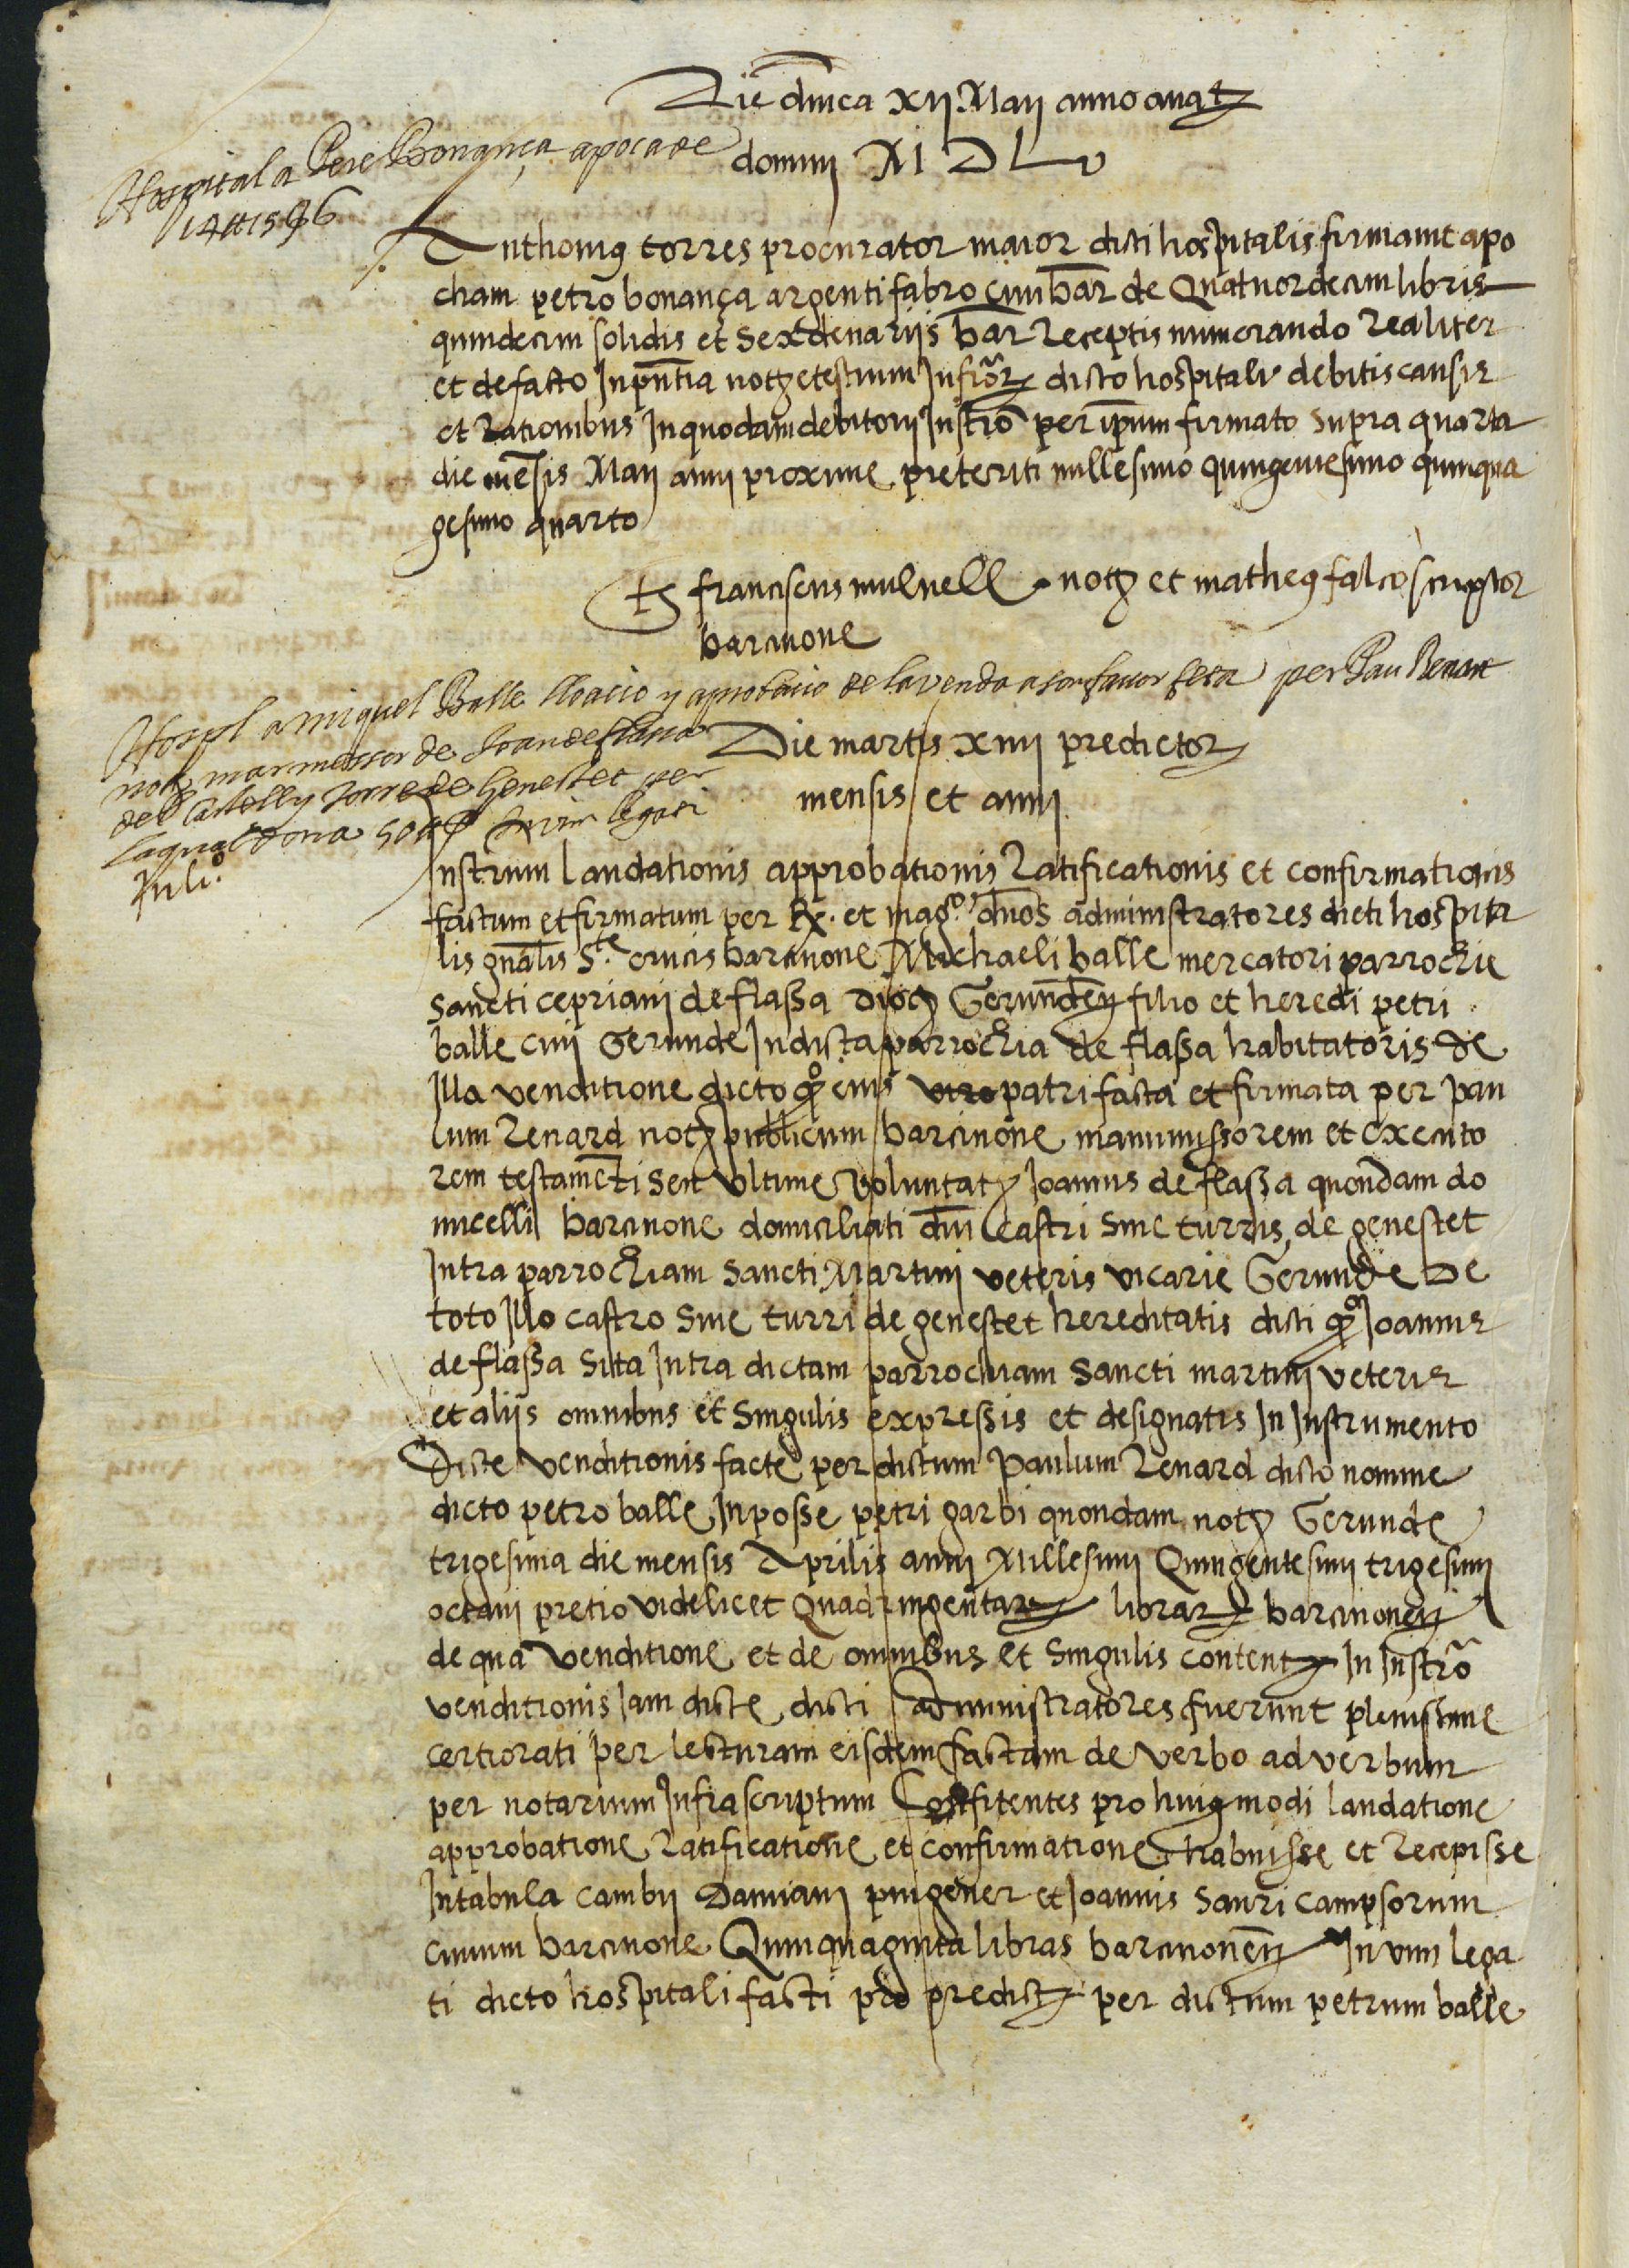 Die dnica XII. Maij anno a natz
domini M D L V
Hospital a Pere Bonança apoca de
14 ₶ 15 s 6
Anthonius torres procurator maior dicti hospitalis firmauit apo
cham petro bonança argentifabro ciui bar de Quatuordecim libris
quindecim solidis et sex denariis bar receptis numerando realiter
et de facto In pñtia notz et testium Infrorz dicto hospitali debitis causis
et rationibus In quodam debitorij Instro per ipum firmato supra quarta
die mesis Maij anni proxime preteriti millesimo quingentesimo quinqua
gesimo quarto
ts franciscus mulnell notz et matheus falco scriptor
barcinone
Hospl a miquel Balle lloacio y aprobacio de la venda a son fauor feta per Pau Renart
notz marmessor de Joan de flassa
del Castell y torre de Genestet per
la qual dona 50 ₶ in vim legati
Juli.
Die martis XIIII predictorz
mensis et anni
Instrum laudationis approbationis ratificationis et confirmationis
factum et firmatum per Rx. et magcos dnos administratores dicti hospita
lis gnalis Ste crucis barcinone Michaeli balle mercatori parrochie
sancti cepriani de flassa dioc Gerunden filio et heredi petri
balle ciuij Gerunde In dicta parrochia de flassa habitatoris de
Illa venditione dicto qo eius viro patri facta et firmata per pau
lum renard notz publicum barcinone manumissorem et executo
rem testameti seu vltime voluntatz Joannis de flassa quondam do
micelli barcinone domiciliati dni castri siue turris de genestet
Intra parrochiam sancti Martini veteris vicarie Gerunde De
toto Illo castro siue turri de genestet hereditatis dicti qo Joannis
de flassa sita Intra dictam parrochiam sancti martini veteris
et aliis omnibus et singulis expressis et designatis In Instrumento
Dicte venditionis facte per dictum paulum renard dicto nomine
dicto petro balle In posse petri garbi quondam notz Gerunde
trigesima die mensis Aprilis anni Millesimi Quingentesimi trigesimi
octaui pretio videlicet Quadringentarz librarz barcinonen
de qua venditione et de omnibus et singulis contentz In Instro
venditionis Iam dicte dicti Administratores fuerunt plenissime
certiorati per lecturam eisdem factam de verbo ad verbum
per notarium Infrascriptum Confitentes pro huiusmodi laudatione
approbatione ratificatione et confirmatione habuisse et recepisse
In tabula cambij Damiani puigener et Joannis sauri campsorum
ciuium barcinone Quinquaginta libras barcinonen In vim lega
ti dicto hospitali facti pro predictz per dictum petrum balle